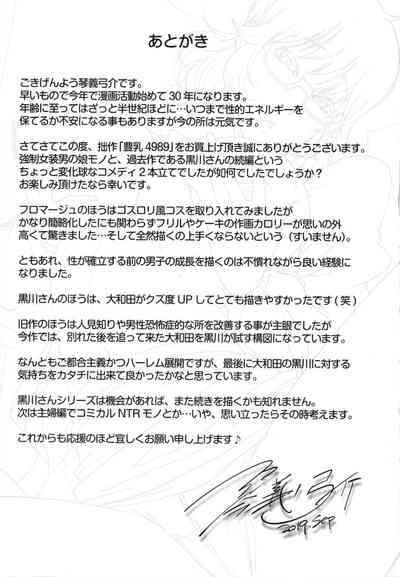 あとがき
ごきげんよう琴義弓介です。
早いもので今年で漫画活動始めて30年になります。
年齢に至ってはざっと半世紀ほどに…いつまで性的エネルギーを
保てるか不安になる事もありますが今の所は元気です。
さてさてこの度、拙作「豊乳4989」をお買上げ頂き誠にありがとうございます。
強制女装男の娘モノと、過去作である黒川さんの続編という
ちょっと変化球なコメディ2本立てでしたが如何でしたでしょうか？
お楽しみ頂けたなら幸いです。
フロマージュのほうはゴスロリ風コスを取り入れてみましたが
かなり簡略化したにも関わらずフリルやケーキの作画カロリーが思いの外
高くて驚きました…そして全然描くの上手くならないという（すいません）。
ともあれ、性が確立する前の男子の成長を描くのは不慣れながら良い経験に
なりました。
黒川さんのほうは、大和田がクズ度UPしてとても描きやすかったです（笑）
旧作のほうは人見知りや男性恐怖症的な所を改善する事が主眼でしたが
今作では、別れた後を追って来た大和田を黒川が試す構図になっています。
なんともご都合主義かつハーレム展開ですが、最後に大和田の黒川に対する
気持ちをカタチに出来て良かったかなと思っています。
黒川さんシリーズは機会があれば、また続きを描くかも知れません。
次は主婦編でコミカルNTRモノとか…いや、思い立ったらその時考えます。
これからも応援のほど宜しくお願い申し上げます♪
琴義弓介
2019.Sep